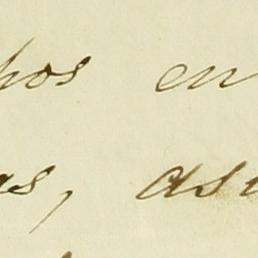 hos en
as, asi